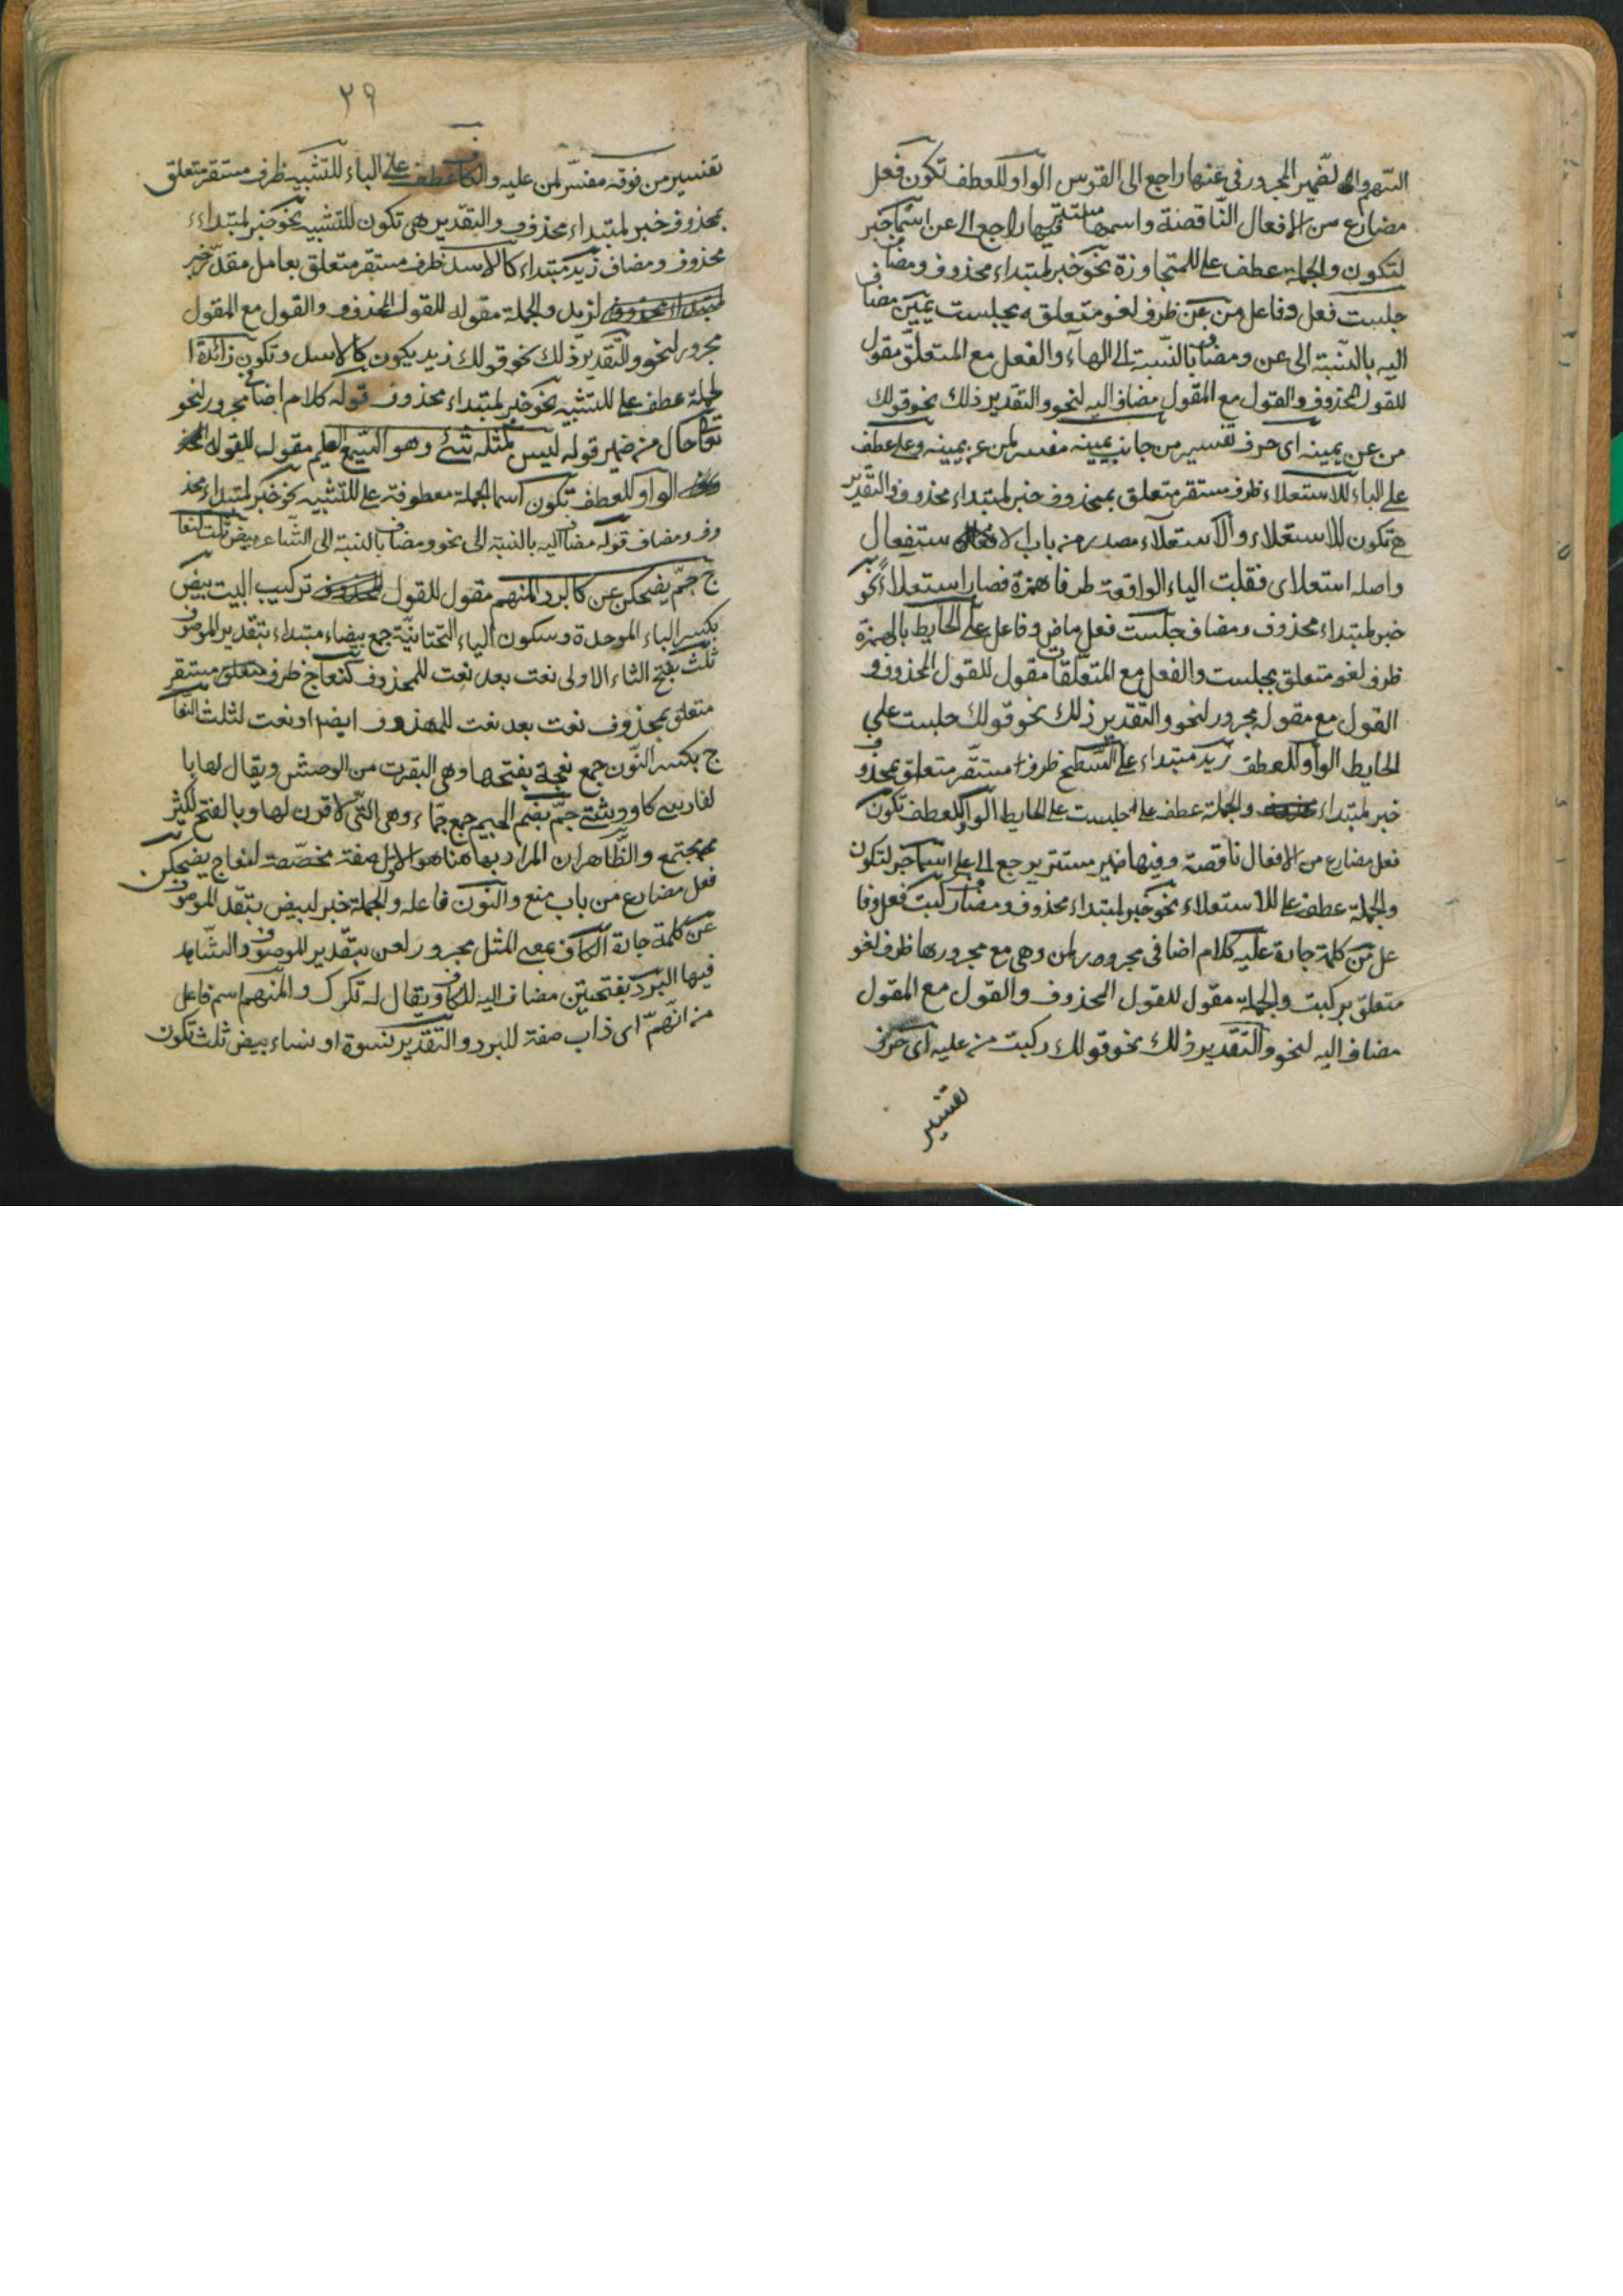 السهم والضمير المجرور في عنها راجع الى القوس الواو للعطف تكون فعل
مضارع من الافعال الناقصة واسمها مستتر فيها راجع الى عن اسما خبر
لتكون والجملة عطف على للمتجاوزة نحو خبر لمبتداء محذوف ومضاف
جلست فعل وفاعل من عن ظرف لغو متعلق بجلست يمين مضاف
اليه بالنسبة الى عن ومضاف بالنسبة الى الهاء والفعل مع المتعلق مقول
للقول المحذوف والقول مع المقول مضاف اليه لنحو والتقدير ذلك نحو قولك
من عن يمينه اى حرف تفسير من جانب يمينه مفسر لمن عن يمينه وعلى عطف
على الباء للاستعلاء ظرف مستقر متعلق بمحذوف خبر لمبتداء محذوف والتقدير
هى تكون للاستعلاء والاستعلاء مصدر من باب الاستفعال
واصله استعلاى فقلبت الياء الواقعة طرفا همزة فصار استعلاء نحو
خبر لمبتداء محذوف ومضاف جلست فعل ماض وفاعل على الحايط بالهمزة
ظرف لغو متعلق بجلست والفعل مع المتعلقات مقول للقول المحذوف و
القول مع مقوله مجرور لنحو والتقدير ذلك نحو قولك جلست على
الحايط الواو للعطف زيد مبتداء على السطح ظرف مستقر متعلق بمحذوف
خبر لمبتداء والجملة عطف على جلست على الحايط الواو للعطف تكون
فعل مضارع من الافعال ناقصة وفيها ضمير مستتر يرجع الى على اسما خبر لتكون
والجملة عطف على للاستعلاء نحو خبر لمبتداء محذوف ومضاف ركبت فعل وفا
عل من كلمة جارة عليه كلام اضافى مجرور لمن وهى مع مجرورها ظرف لغو
متعلق بركبت والجملة مقول للقول المحذوف والقول مع المقول
مضاف اليه لنحو والتقدير ذلك نحو قولك ركبت من عليه اى حرف
تفسير
٢٩
تفسير من فوقه مفسر لمن عليه والكاف عطف على الباء للتشبيه ظرف مستقر متعلق
بمحذوف خبر لمبتداء محذوف والتقدير هى تكون للتشبيه نحو خبر لمبتداء
محذوف ومضاف زيد مبتداء كالاسد ظرف مستقر متعلق بعامل مقدر خبر
لزيد والجملة مقوله للقول المحذوف والقول مع المقول
مجرور لنحو والتقدير ذلك نحو قولك زيد يكون كالاسد وتكون زائدة ا
لجملة عطف على للتشبيه نحو خبر لمبتداء محذوف قوله كلام اضافى مجرور لنحو
تعا حال من ضمير قوله ليس كمثله شئ وهو السميع العليم مقول للقول المحذ
الواو للعطف تكون اسما الجملة معطوفة على للتشبيه نحو خبر لمبتداء محذ
وف ومضاف قوله مضاف اليه بالنسبة الى نحو ومضاف بالنسبة الى الشاعر بيض ثلث كنعا
ج جم يضحكن عن كالبرد المنهم مقول للقول تركيب البيت بيض
بكسر الباء الموحدة وسكون الياء التحتانية جمع بيضاء مبتداء بتقدير الموصوف
ثلث بفتح الثاء الاولى نعت بعد نعت للمحذوف كنعاج ظرف مستقر
متعلق بمحذوف نعت بعد نعت للمحذوف ايضا او نعت لثلث النعا
ج بكسر النون جمع نعجة بفتحها وهى البقرت من الوحش ويقال لها با
لفارسى كاو دشتى جم بضم الجيم جمع جماء وهى التى لا قرن لها وبالفتح لكثير
مجتمع والظاهر ان المراد بها هنا هو الاول صفة مخصصة لنعاج يضحكن
فعل مضارع من باب منع والنون فاعله والجملة خبر لبيض بتقدير الموصوف
عن كلمة جارة الكاف بمعنى المثل مجرور لعن بتقدير الموصوف والشاهد
فيها البرد بفتحتين مضاف اليه للكاف ويقال له تكرك والمنهم اسم فاعل
من انهم اى ذاب صفة للبرد والتقدير نسوة او نساء بيض ثلث تكون